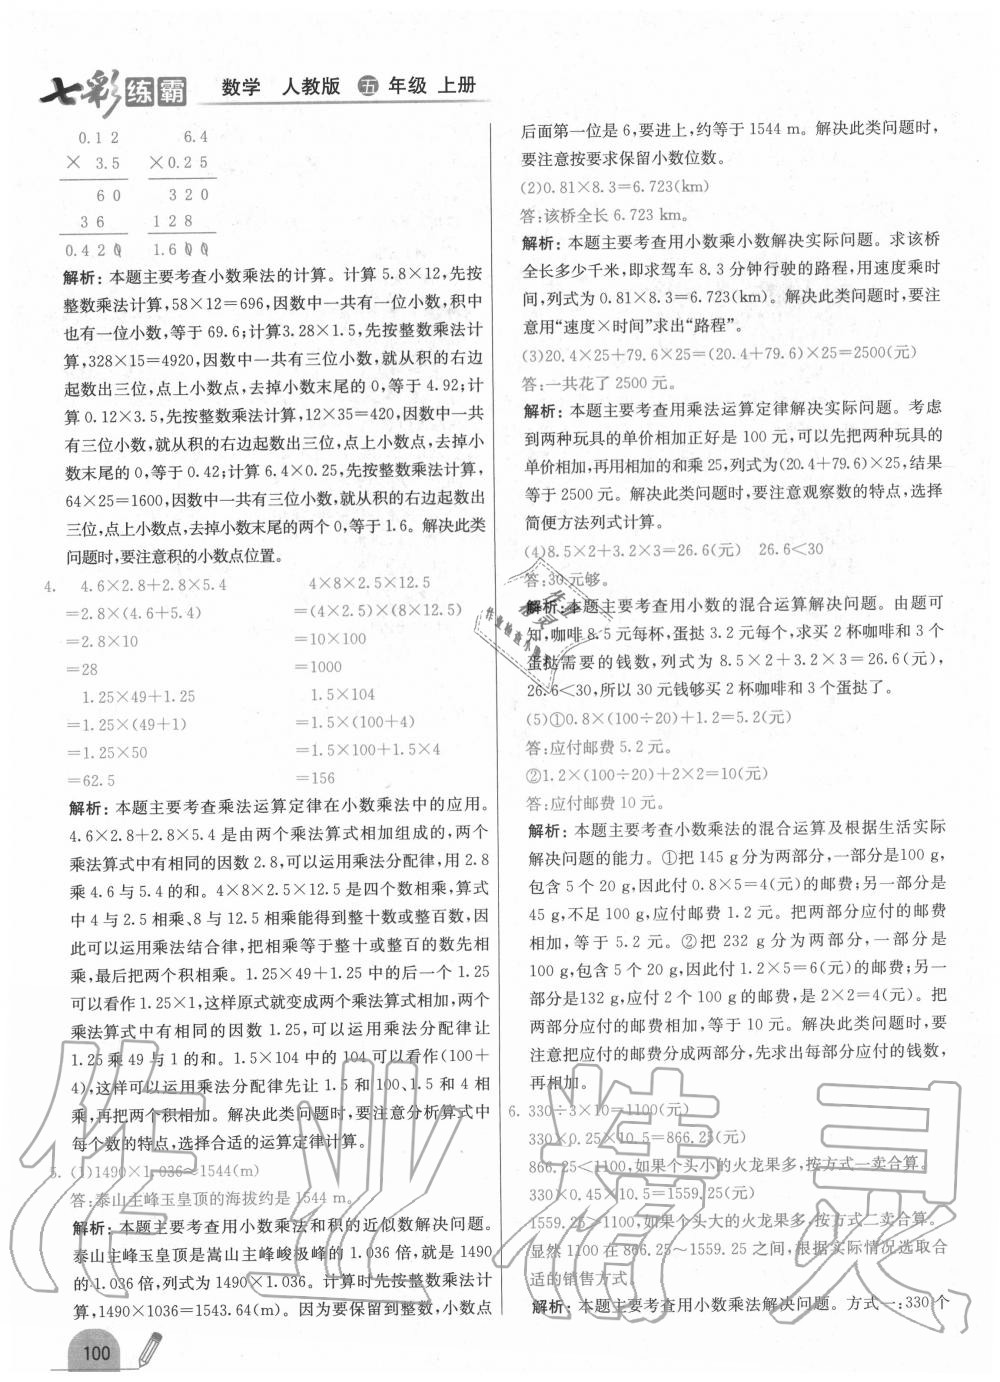 七彩练霸 数学 人教版 五年级 上册
0.12
× 3.5
60
36
0.420
6.4
×0.25
320
128
1.600
解析：本题主要考查小数乘法的计算。计算 5.8×12,先按
整数乘法计算,58×12=696,因数中一共有一位小数,积中
也有一位小数,等于 69.6;计算3.28×1.5,先按整数乘法计
算,328×15=4920,因数中一共有三位小数,就从积的右边
起数出三位,点上小数点,去掉小数末尾的 0,等于 4.92;计
算 0.12×3.5,先按整数乘法计算,12×35=420,因数中一共
有三位小数,就从积的右边起数出三位,点上小数点,去掉小
数末尾的 0,等于 0.42;计算 6.4×0.25,先按整数乘法计算,
64×25=1600,因数中一共有三位小数,就从积的右边起数出
三位,点上小数点,去掉小数末尾的两个 0,等于 1.6。解决此类
问题时,要注意积的小数点位置。
4. 4.6×2.8+2.8×5.4
=2.8×(4.6+5.4)
=2.8×10
=28
4×8×2.5×12.5
=(4×2.5)×(8×12.5)
=10×100
=1000
1.25×49+1.25
=1.25×(49+1)
=1.25×50
=62.5
1.5×104
=1.5×(100+4)
=1.5×100+1.5×4
=156
解析：本题主要考查乘法运算定律在小数乘法中的应用。
4.6×2.8+2.8×5.4 是由两个乘法算式相加组成的,两个
乘法算式中有相同的因数 2.8,可以运用乘法分配律,用 2.8
乘 4.6 与 5.4 的和。4×8×2.5×12.5 是四个数相乘,算式
中 4 与 2.5 相乘、8 与 12.5 相乘能得到整十数或整百数,因
此可以运用乘法结合律,把相乘等于整十或整百的数先相
乘,最后把两个积相乘。1.25×49+1.25 中的后一个 1.25
可以看作 1.25×1,这样原式就变成两个乘法算式相加,两个
乘法算式中有相同的因数 1.25,可以运用乘法分配律让
1.25 乘 49 与 1 的和。1.5×104 中的 104 可以看作(100+
4),这样可以运用乘法分配律先让 1.5 和 100、1.5 和 4 相
乘,再把两个积相加。解决此类问题时,要注意分析算式中
每个数的特点,选择合适的运算定律计算。
5. (1)1490×1.036≈1544(m)
答:泰山主峰玉皇顶的海拔约是 1544 m。
解析：本题主要考查用小数乘法和积的近似数解决问题。
泰山主峰玉皇顶是嵩山主峰峻极峰的 1.036 倍,就是 1490
的 1.036 倍,列式为 1490×1.036。计算时先按整数乘法计
算,1490×1036=1543.64(m)。因为要保留到整数,小数点
后面第一位是 6,要进上,约等于 1544 m。解决此类问题时,
要注意按要求保留小数位数。
(2)0.81×8.3=6.723(km)
答:该桥全长 6.723 km。
解析：本题主要考查用小数乘小数解决实际问题。求该桥
全长多少千米,即求驾车 8.3 分钟行驶的路程,用速度乘时
间,列式为 0.81×8.3=6.723(km)。解决此类问题时,要注
意用“速度×时间”求出“路程”。
(3)20.4×25+79.6×25=(20.4+79.6)×25=2500(元)
答:一共花了 2500 元。
解析：本题主要考查用乘法运算定律解决实际问题。考虑
到两种玩具的单价相加正好是 100 元,可以先把两种玩具的
单价相加,再用相加的和乘 25,列式为(20.4+79.6)×25,结果
等于 2500 元。解决此类问题时,要注意观察数的特点,选择
简便方法列式计算。
(4)8.5×2+3.2×3=26.6(元) 26.6<30
答:30 元够。
解析：本题主要考查用小数的混合运算解决问题。由题可
知,咖啡 8.5 元每杯,蛋挞 3.2 元每个,求买 2 杯咖啡和 3 个
蛋挞需要的钱数,列式为 8.5×2+3.2×3=26.6(元),
26.6<30,所以 30 元钱够买 2 杯咖啡和 3 个蛋挞了。
(5)①0.8×(100÷20)+1.2=5.2(元)
答:应付邮费 5.2 元。
②1.2×(100÷20)+2×2=10(元)
答:应付邮费 10 元。
解析：本题主要考查小数乘法的混合运算及根据生活实际
解决问题的能力。①把 145 g 分为两部分,一部分是100 g,
包含 5 个 20 g,因此付 0.8×5=4(元)的邮费;另一部分是
45 g,不足 100 g,应付邮费 1.2 元。把两部分应付的邮费
相加,等于 5.2 元。②把 232 g 分为两部分,一部分是
100 g,包含 5 个 20 g,因此付 1.2×5=6(元)的邮费;另一
部分是132 g,应付 2 个 100 g 的邮费,是 2×2=4(元)。把
两部分应付的邮费相加,等于 10 元。解决此类问题时,要
注意把应付的邮费分成两部分,先求出每部分应付的钱数,
再相加。
6. 330÷3×10=1100(元)
330×0.25×10.5=866.25(元)
866.25<1100,如果个头小的火龙果多,按方式一卖合算。
330×0.45×10.5=1559.25(元)
1559.25>1100,如果个头大的火龙果多,按方式二卖合算。
显然 1100 在 866.25~1559.25 之间,根据实际情况选取合
适的销售方式。
解析：本题主要考查用小数乘法解决问题。方式一:330 个
100
作业精灵